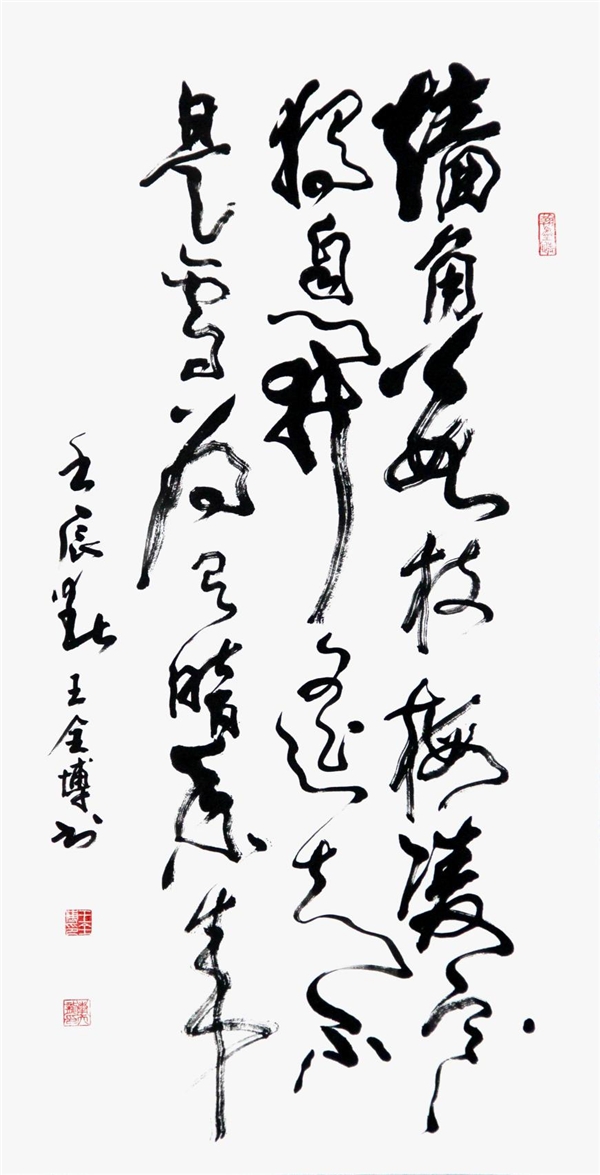 墙角数枝梅凌寒
独自開遥知不
是雪为有暗香来
壬辰歲王全博书